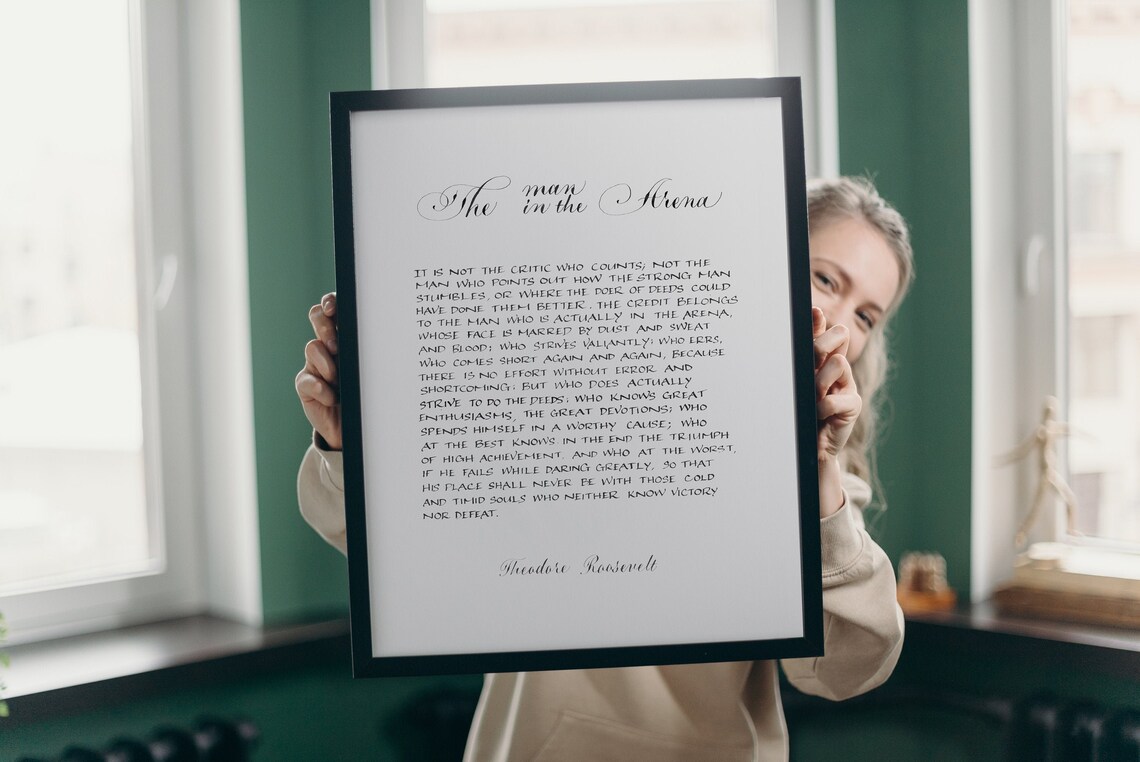 The man in the Arena
IT IS NOT THE CRITIC WHO COUNTS; NOT THE
MAN WHO POINTS OUT HOW THE STRONG MAN
STUMBLES, OR WHERE THE DOER OF DEEDS COULD
HAVE DONE THEM BETTER. THE CREDIT BELONGS
TO THE MAN WHO IS ACTUALLY IN THE ARENA,
WHOSE FACE IS MARRED BY DUST AND SWEAT
AND BLOOD; WHO STRIVES VALIANTLY; WHO ERRS,
WHO COMES SHORT AGAIN AND AGAIN, BECAUSE
THERE IS NO EFFORT WITHOUT ERROR AND
SHORTCOMING; BUT WHO DOES ACTUALLY
STRIVE TO DO THE DEEDS; WHO KNOWS GREAT
ENTHUSIASMS, THE GREAT DEVOTIONS; WHO
SPENDS HIMSELF IN A WORTHY CAUSE; WHO
AT THE BEST KNOWS IN THE END THE TRIUMPH
OF HIGH ACHIEVEMENT, AND WHO AT THE WORST,
IF HE FAILS WHILE DARING GREATLY, SO THAT
HIS PLACE SHALL NEVER BE WITH THOSE COLD
AND TIMID SOULS WHO NEITHER KNOW VICTORY
NOR DEFEAT.
Theodore Roosevelt